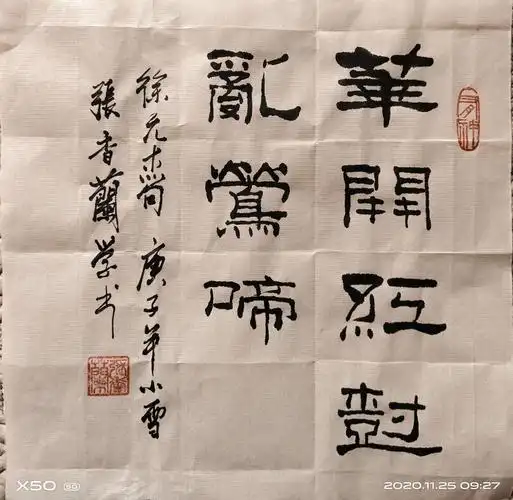 華開紅樹
亂鶯啼
徐元 庚子年小雪
張香蘭学书
X50 5G
2020.11.25 09:27